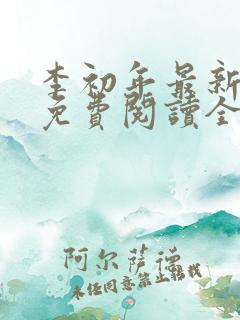 李初年最新
免費閱讀全
阿尔萨德
未经同意禁止转载